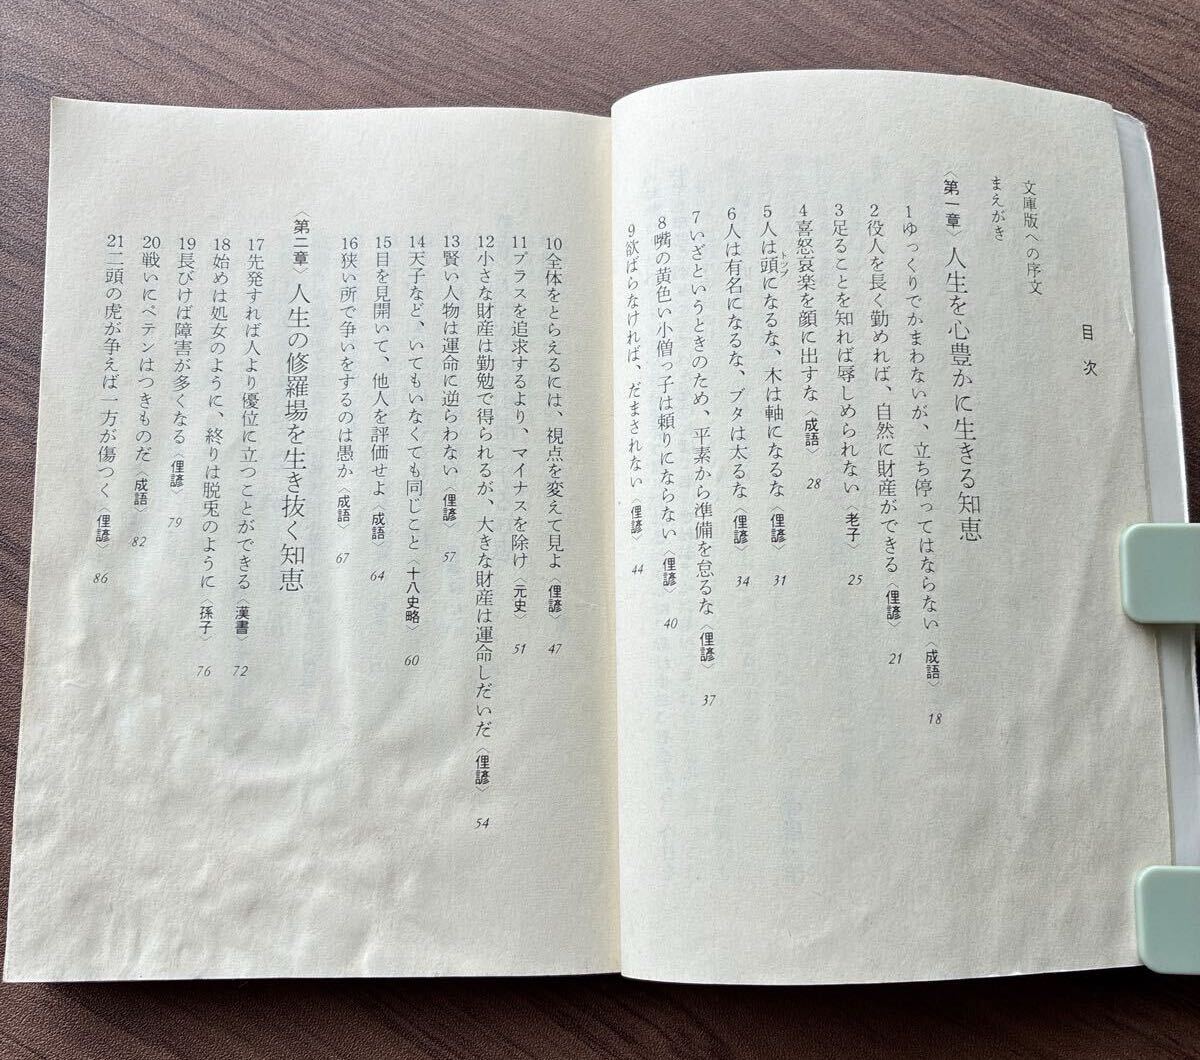 目次
文庫版への序文
まえがき
〈第一章〉人生を心豊かに生きる知恵
1 ゆっくりでかまわないが、立ち停ってはならない〈成語〉 18
2 役人を長く勤めれば、自然に財産ができる〈俚諺〉 21
3 足ることを知れば辱しめられない〈老子〉 25
4 喜怒哀楽を顔に出すな〈成語〉 28
5 人は頭になるな、木は軸になるな〈俚諺〉 31
トップ
6 人は有名になるな、ブタは太るな〈俚諺〉 34
7 いざというときのため、平素から準備を怠るな〈俚諺〉 37
8 嘴の黄色い小僧っ子は頼りにならない〈俚諺〉 40
9 欲ばらなければ、だまされない〈俚諺〉 44
10 全体をとらえるには、視点を変えて見よ〈俚諺〉 47
11 プラスを追求するより、マイナスを除け〈元史〉 51
12 小さな財産は勤勉で得られるが、大きな財産は運命しだいだ〈俚諺〉 54
13 賢い人物は運命に逆らわない〈俚諺〉 57
14 天子など、いてもいなくても同じこと〈十八史略〉 60
15 目を見開いて、他人を評価せよ〈成語〉 64
16 狭い所で争いをするのは愚か〈成語〉 67
〈第二章〉人生の修羅場を生き抜く知恵
17 先発すれば人より優位に立つことができる〈漢書〉 72
18 始めは処女のように、終りは脱兎のように〈孫子〉 76
19 長びけば障害が多くなる〈俚諺〉 79
20 戦いにペテンはつきものだ〈成語〉 82
21 二頭の虎が争えば一方が傷つく〈俚諺〉 86